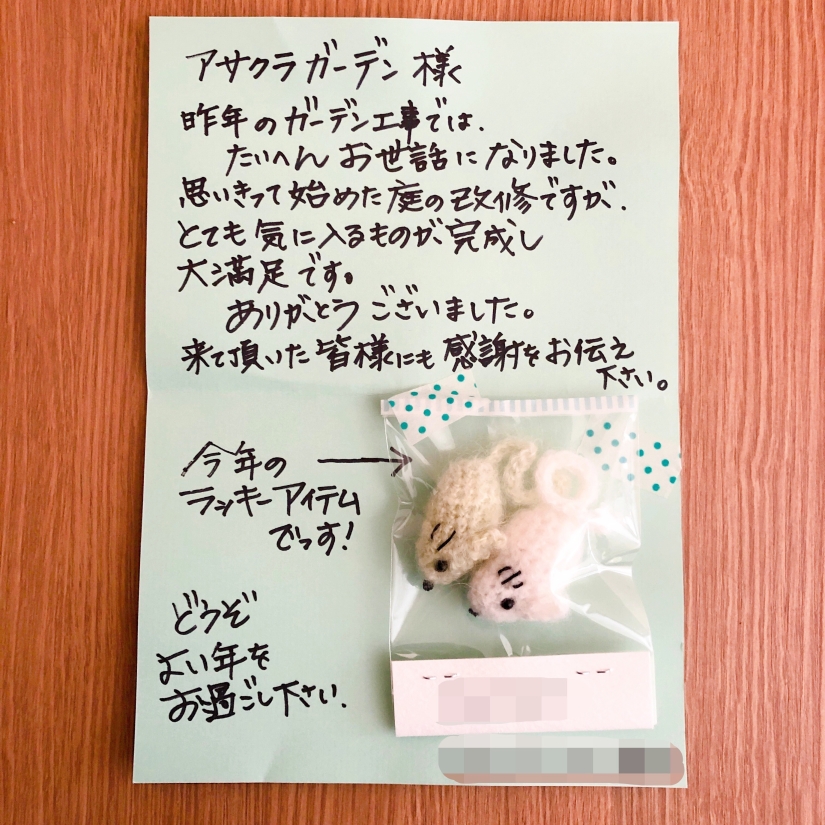 アサクラガーデン様
昨年のガーデン工事では、
たいへんお世話になりました。
思いきって始めた庭の改修ですが、
とても気に入るものが完成し
大満足です。
ありがとうございました。
来て頂いた皆様にも感謝をお伝え
下さい。
今年の
ラッキーアイテム
でっす!
どうぞ
よい年を
お過ごし下さい.